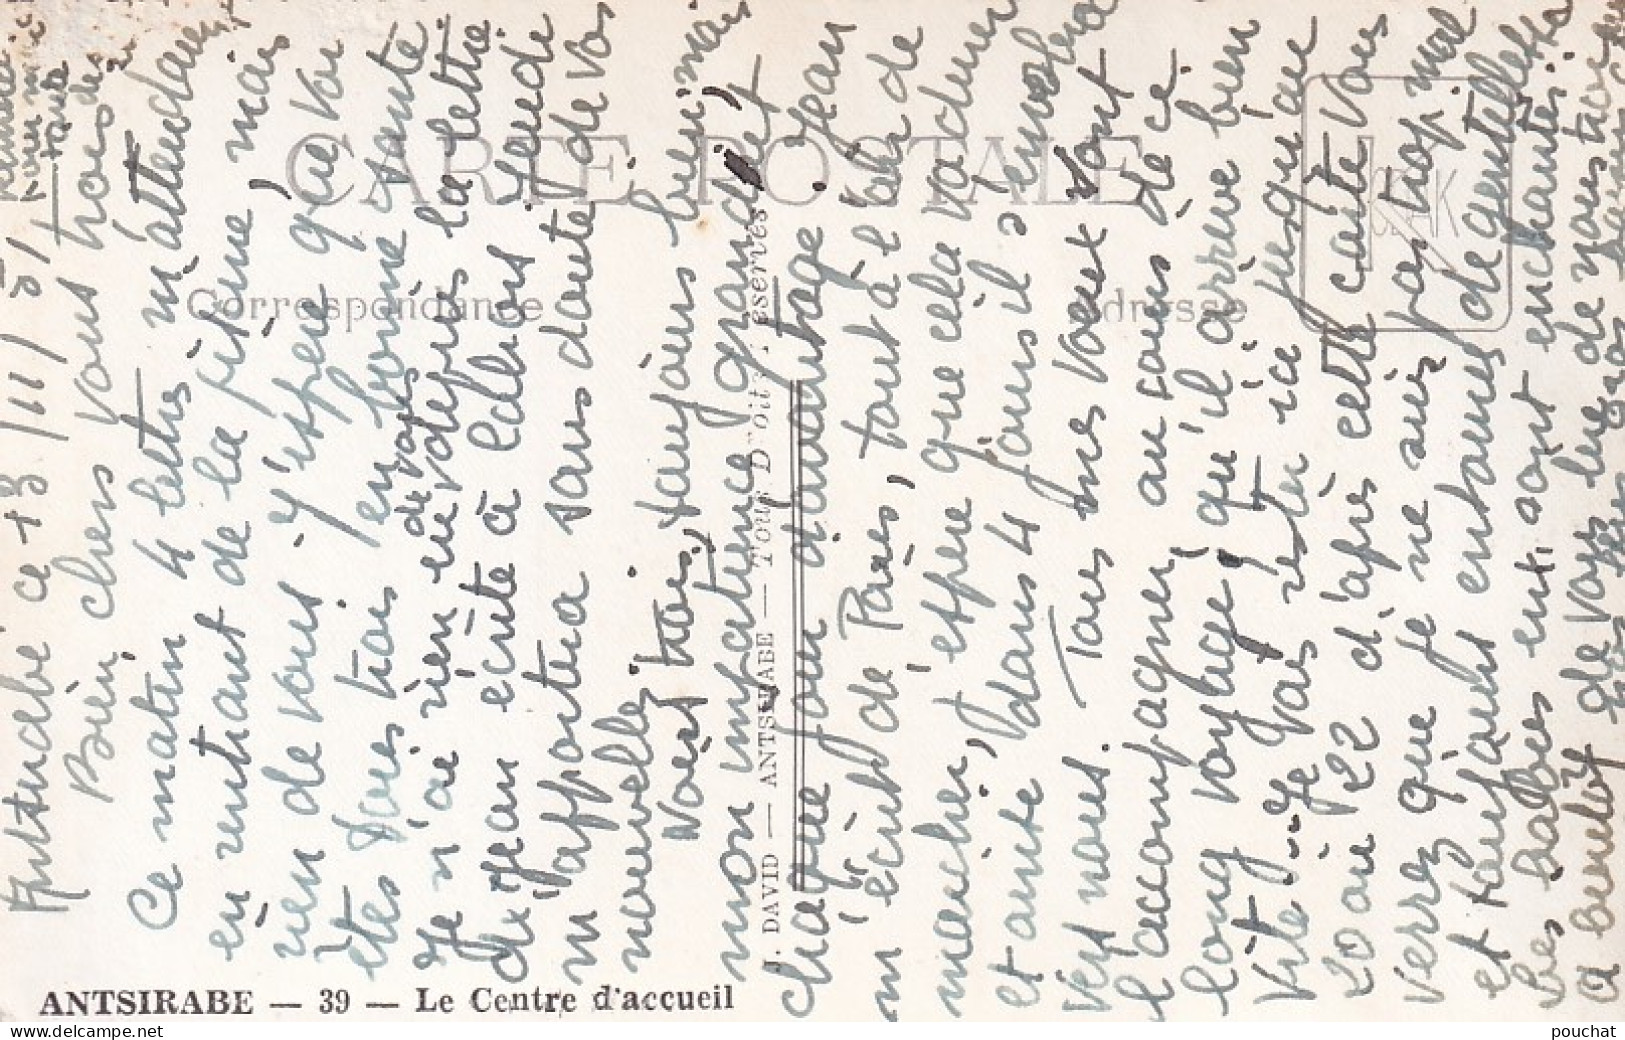 Antsirabé ce 18/11/51
Bien chers vous trois
Ce matin 4 lettres m'attendaient
en rentrant de la piqure, mais
rien de vous. J'espère que vous
êtes tous trois en bonne santé
Je n'ai rien eu de vous depuis la lettre
de Jean écrite à Cahors. Jeudi
m'apportera sans doute de vos
nouvelles.
Noës, toujours bien, mais
mon impatience grandit
chaque jour davantage. Jean
m'écrit de Paris, tout à l'air de
marcher, j'espère que cela va durer
et ainsi dans 4 jours il s'envolera
vers nous. Tous mes voeux vont
l'accompagner au cours de ce
long voyage, qu'il arrive bien
vite. Je vais rester ici jusqu'au
20 ou 22 d'après cette carte vous
verrez que je ne suis pas trop mal
et toujours entourée de gentillesse
Les enchantés.
à bientôt de vous lire
CARTE POSTALE
Correspondance
Adresse
CEAK
J. DAVID — ANTSIRABE — Tous Droits réservés
ANTSIRABE — 39 — Le Centre d'accueil
www.delcampe.net
pouchat